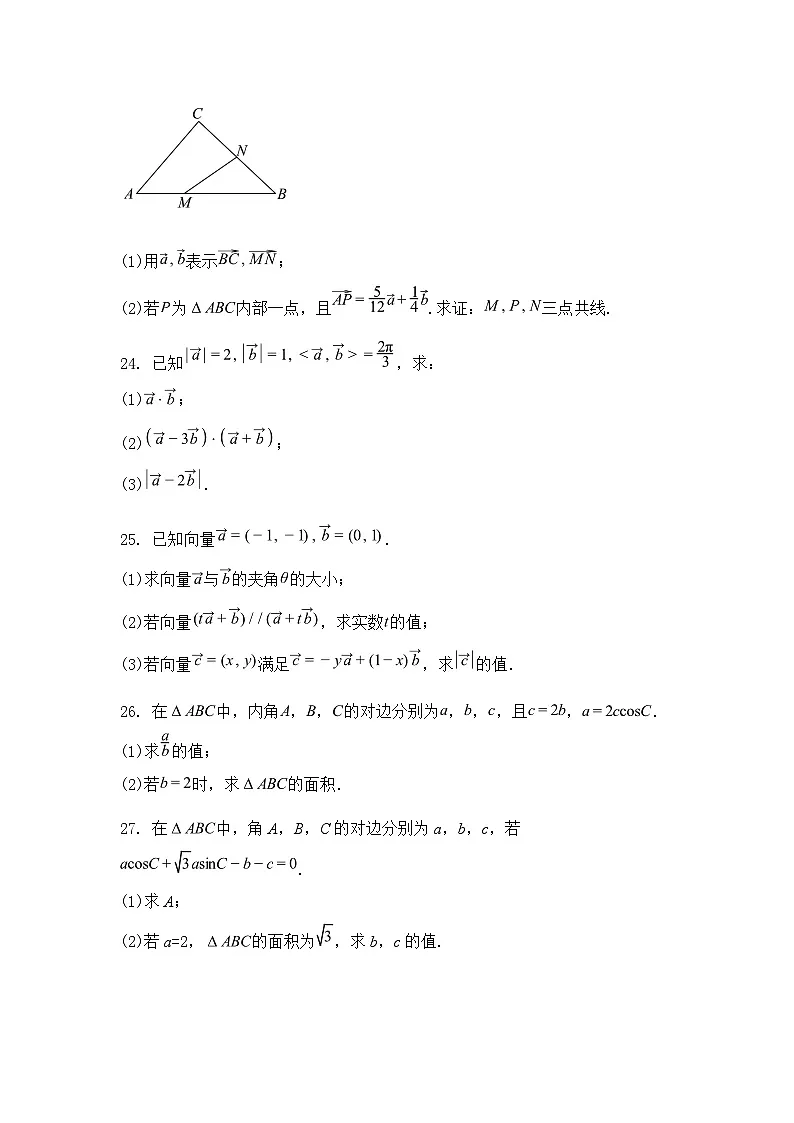 C
N
A
M
B
(1)用a⃗,b⃗表示BC⃗,MN⃗;
(2)若P为ΔABC内部一点，且AP⃗=5/12a⃗+1/4b⃗.求证：M,P,N三点共线.
24. 已知|a⃗|=2,|b⃗|=1,<a⃗,b⃗>=2π/3，求：
(1)a⃗·b⃗；
(2)(a⃗−3b⃗)·(a⃗+b⃗)；
(3)|a⃗−2b⃗|.
25. 已知向量a⃗=(−1,−1),b⃗=(0,1).
(1)求向量a⃗与b⃗的夹角θ的大小；
(2)若向量(ta⃗+b⃗)//(a⃗+tb⃗)，求实数t的值；
(3)若向量c⃗=(x,y)满足c⃗=−ya⃗+(1−x)b⃗，求|c⃗|的值.
26. 在ΔABC中，内角A，B，C的对边分别为a，b，c，且c=2b，a=2ccosC.
(1)求a/b的值；
(2)若b=2时，求ΔABC的面积.
27. 在ΔABC中，角A，B，C的对边分别为a，b，c，若
acosC+√3asinC−b−c=0.
(1)求A；
(2)若a=2，ΔABC的面积为√3，求b，c的值.